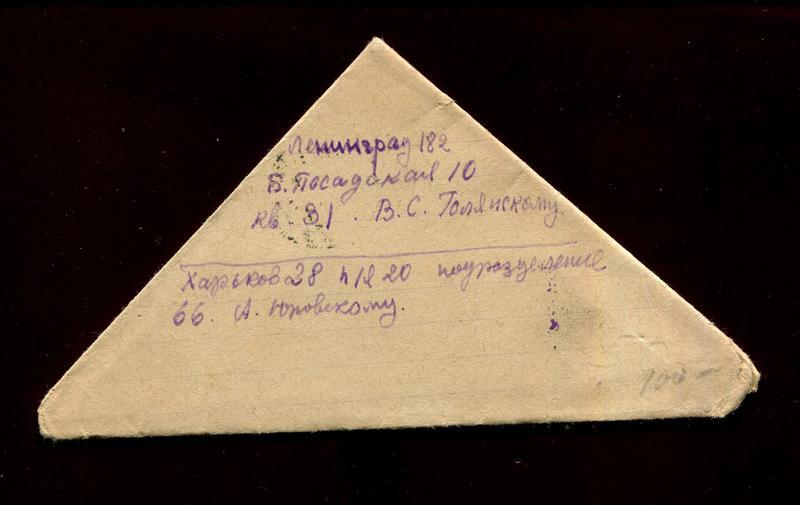 Ленинград 182
Б. Посадская 10
кв. 31. В. С. Голянскому.
Харьков 28 п/я 20 подразделение
66. А. Юровскому.
100 -